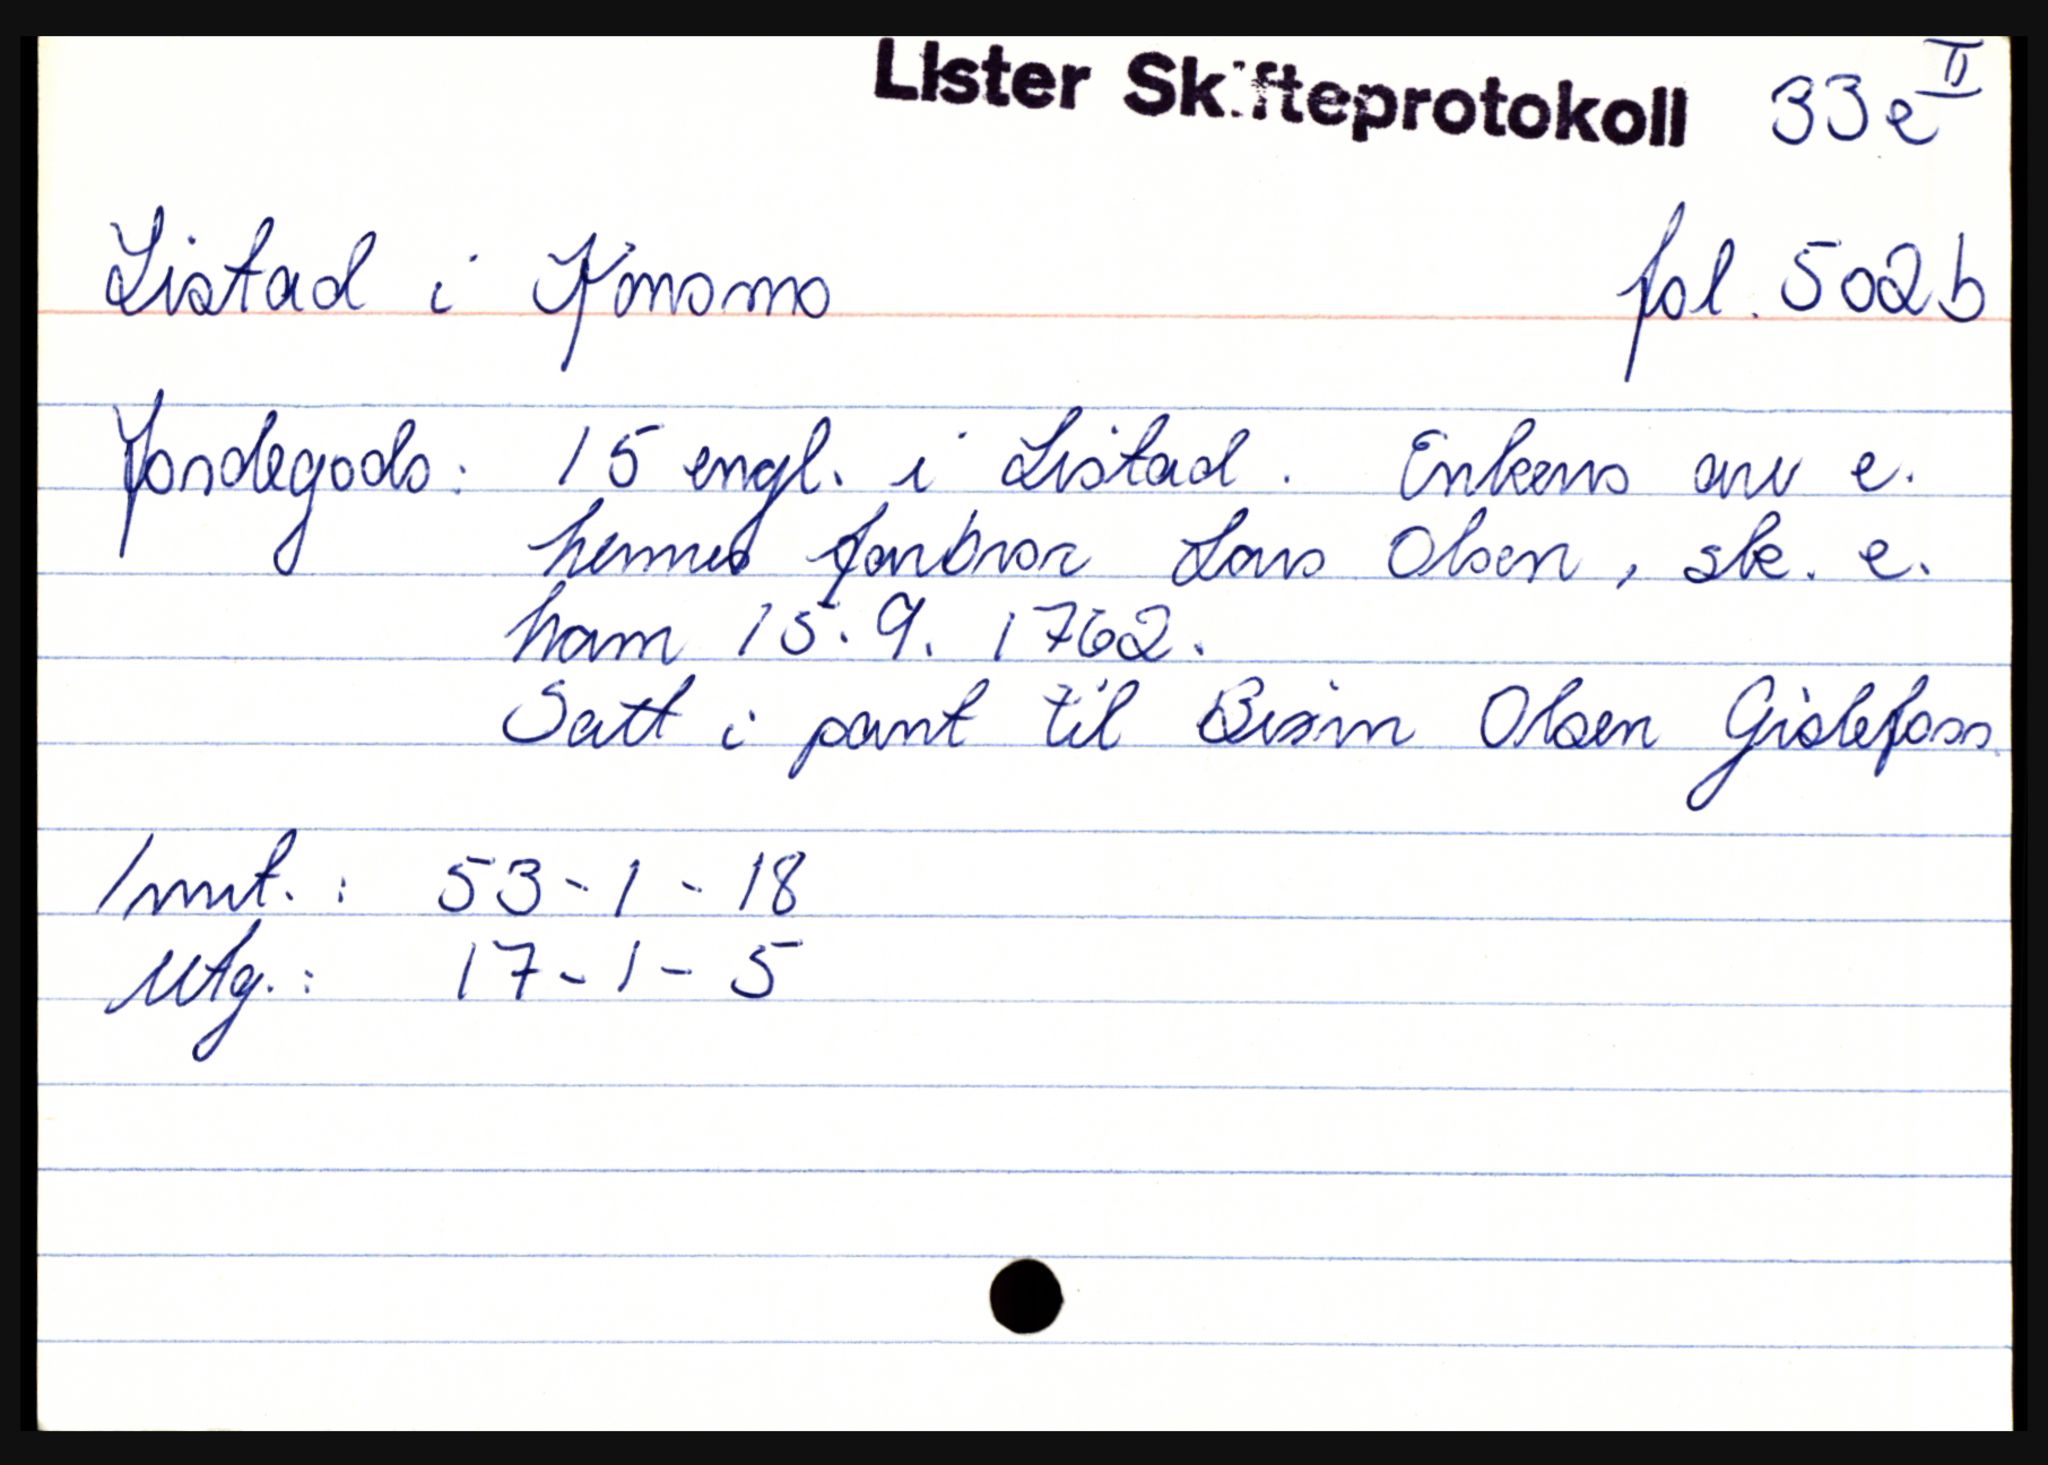 Lister Skifteprotokoll 33e II
Listad i Konsmo fol. 502b
Jordegods: 15 engl. i Listad. Enkens arv e.
hennes farbror Lars Olsen, sk. e.
ham 15.9. 1762.
Satt i pant til Sisin Olsen Gislefoss.
Innt.: 53-1-18
Utg.: 17-1-5